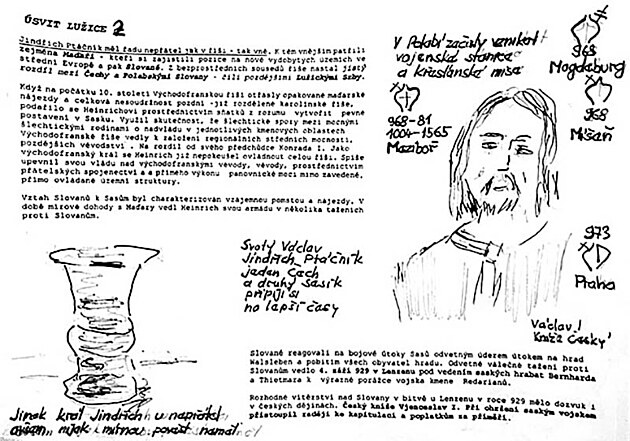 ÚSVIT LUŽICE 2
Jindřich Ptáčník měl řadu nepřátel jak v říši - tak vně. K těm vnějším patřili
zejména Maďaři - kteří si zajistili pozice na nově vydobytých územích ve
střední Evropě a pak Slované. Z bezprostředních sousedů říše nastal jistý
rozdíl mezi Čechy a Polabskými Slovany - čili pozdějšími Lužickými Srby.
Když na počátku 10. století Východofranskou říší otřásly opakované maďarské
nájezdy a celková nesoudržnost pozdní - již rozdělené karolínské říše,
podařilo se Heinrichovi prostřednictvím sňatků z rozumu vytvořit pevné
postavení v Sasku. Využil skutečnosti, že šlechtické spory mezi mocnými
šlechtickými rodinami o nadvládu v jednotlivých kmenových oblastech
Východofranské říše vedly k založení regionálních středních mocností,
pozdějších vévodství. Na rozdíl od svého předchůdce Konrada I. Jako
východofranský král se Heinrich již nepokoušel ovládnout celou říši. Spíše
upevnil svou vládu nad východofranskými vévody, vévody, prostřednictvím
přátelských spojenectví a a přímého výkonu panovnické moci mimo zavedené,
přímo ovládané územní struktury.
Vztah Slovanů k Sasům byl charakterizován vzájemnou pomstou a nájezdy. V
době mírové dohody s Maďary vedl Heinrich svou armádu v několika taženích
proti Slovanům.
V Polabí začaly vznikat
vojenská stanoviska
a křesťanská misie
968-81
1004-1565
Meziboř
968
Magdeburg
968
Míšeň
973
Praha
Svatý Václav
Jindřich Ptáčník
jeden Čech
a druhý Sasík
připíjí si
na lepší časy
Václav I
Kníže Český
Jinak král Jindřich
Slované reagovali na bojové útoky Sasů odvetným úderem útokem na hrad
Walsleben a pobitím všech obyvatel hradu. Odvetné válečné tažení proti
Slovanům vedlo 4. září 929 v Lenzenu pod vedením saských hrabat Bernharda
a Thietmara k výrazné porážce vojska kmene Redarianů.
Rozhodné vítězství nad Slovany v bitvě u Lenzenu v roce 929 mělo dozvuk i
v českých dějinách. Český kníže Vjenceslav I. Při ohrožení saským vojskem
přistoupil raději ke kapitulaci a poplatkům za příměří.